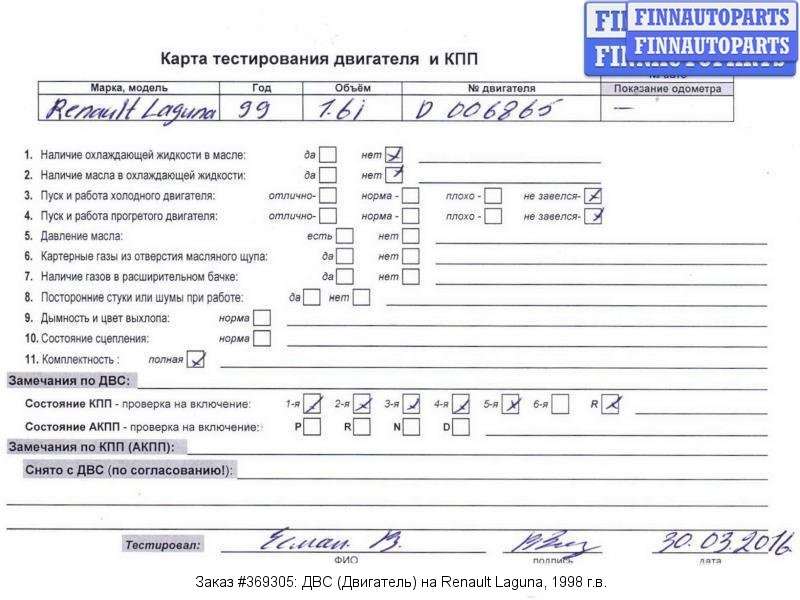 FINNAUTOPARTS
FINNAUTOPARTS
Карта тестирования двигателя и КПП
Марка, модель Год Объём № двигателя Показание одометра
Renault Laguna 99 1.6i D 006865 —
1. Наличие охлаждающей жидкости в масле: да нет
2. Наличие масла в охлаждающей жидкости: да нет
3. Пуск и работа холодного двигателя: отлично- норма - плохо - не завелся-
4. Пуск и работа прогретого двигателя: отлично- норма - плохо - не завелся-
5. Давление масла: есть нет
6. Картерные газы из отверстия масляного щупа: да нет
7. Наличие газов в расширительном бачке: да нет
8. Посторонние стуки или шумы при работе: да нет
9. Дымность и цвет выхлопа: норма
10. Состояние сцепления: норма
11. Комплектность : полная
Замечания по ДВС:
Состояние КПП - проверка на включение: 1-я 2-я 3-я 4-я 5-я 6-я R
Состояние АКПП - проверка на включение: P R N D
Замечания по КПП (АКПП):
Снято с ДВС (по согласованию!):
Тестировал: Есман В. 30.03.2016
ФИО подпись дата
Заказ #369305: ДВС (Двигатель) на Renault Laguna, 1998 г.в.